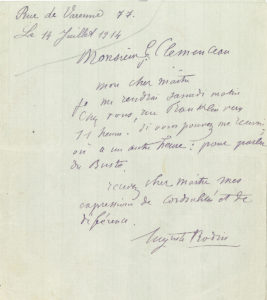 Rue de Varenne 77.
Le 14 Juillet 1914
Monsieur G Clemenceau
mon cher maître
Je me rendrai samedi matin
chez vous, rue Franklin vers
11 heures. Si vous pouvez me recevoir
ou a un autre heure : pour parler
du Buste.
recevez cher maitre mes
expressions de cordialité et de
déférence.
Auguste Rodin